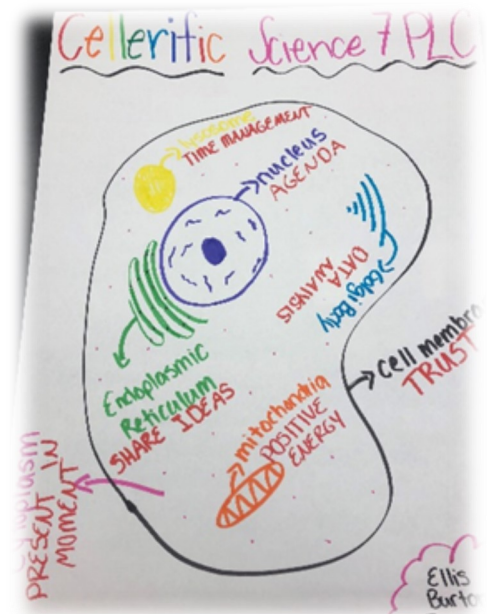 Cellerific Science 7 PLC
lysosome
TIME MANAGEMENT
nucleus
AGENDA
Golgi Body
DATA
ANALYSIS
Endoplasmic
Reticulum
SHARE IDEAS
cell membra
TRUST
mitochondria
POSITIVE
ENERGY
cytoplasm
PRESENT IN
MOMENT
Ellis
Burto